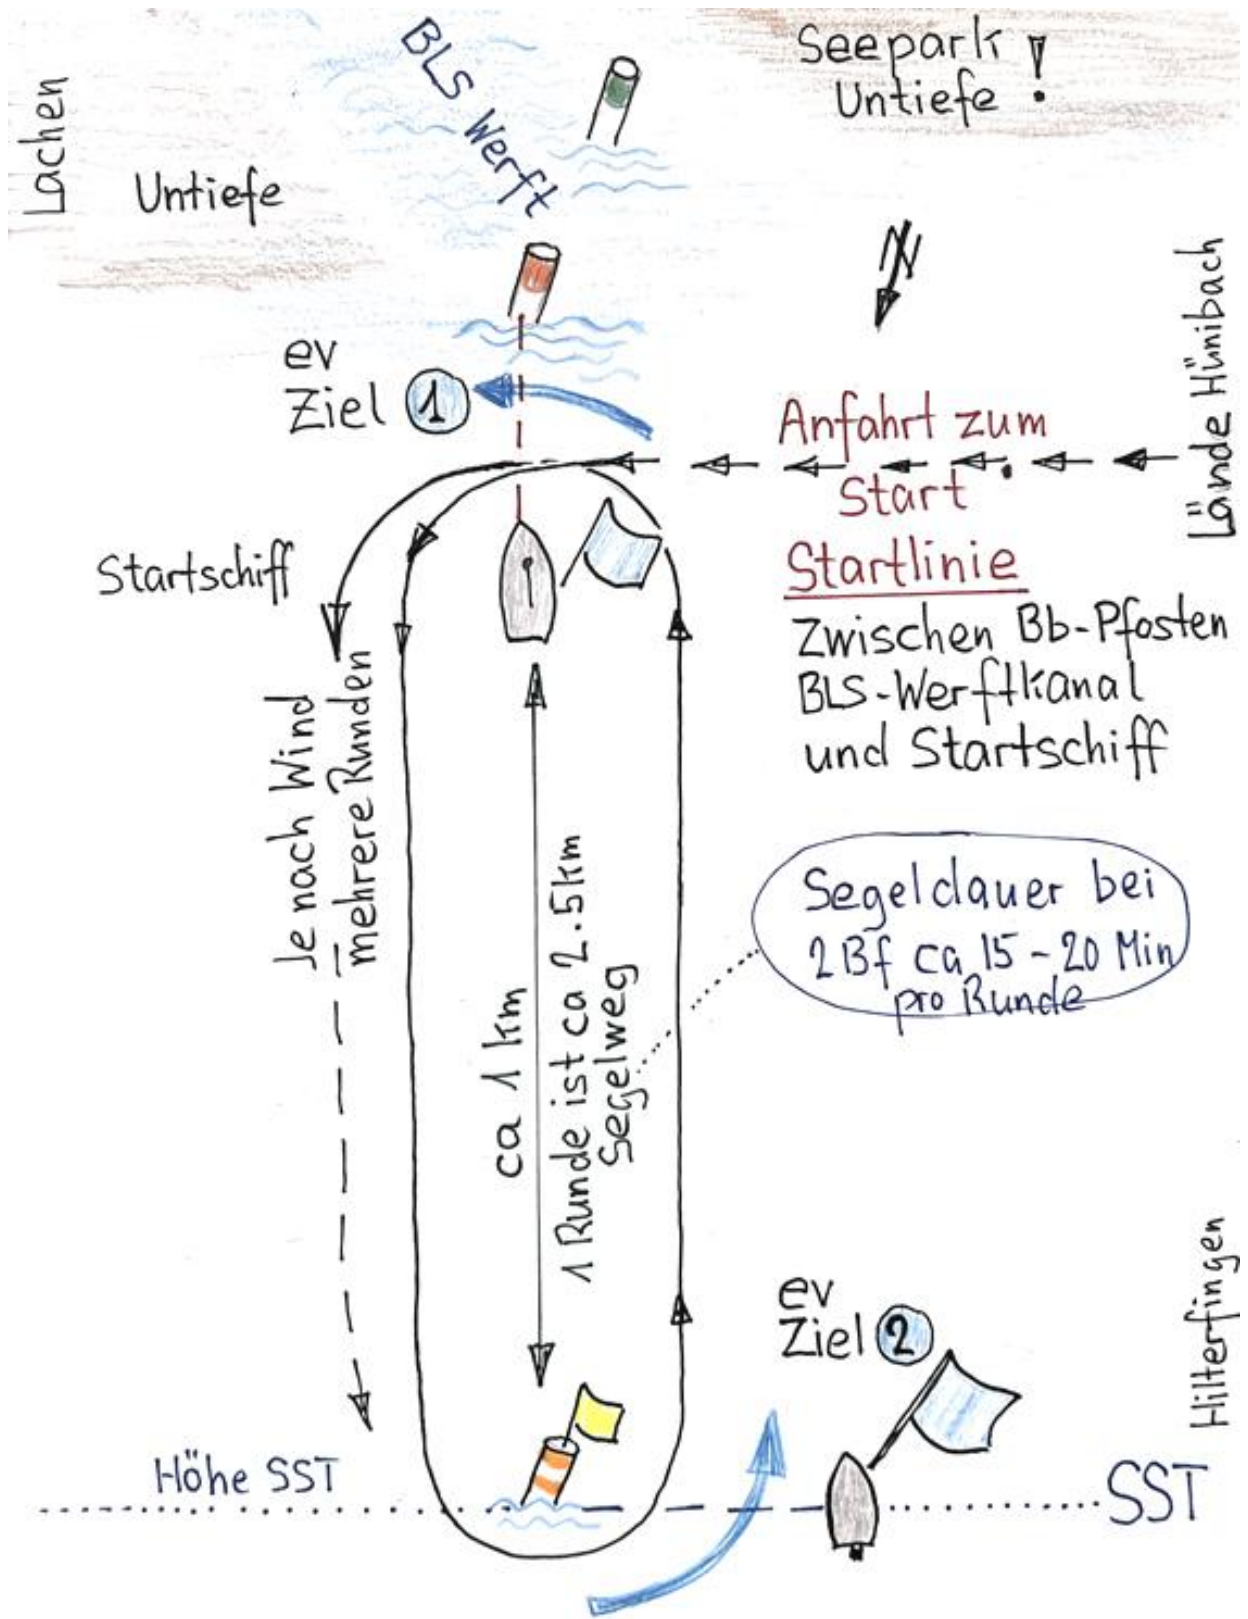 BLS Werft
Seepark !
Untiefe
Lachen
Untiefe
N
Lände Hünibach
ev
Ziel 1
Anfahrt zum
Start
Startschiff
Startlinie
Zwischen Bb-Pfosten
BLS-Werftkanal
und Startschiff
Je nach Wind
mehrere Runden
ca 1 km
1 Runde ist ca 2.5km
Segelweg
Segeldauer bei
2Bf ca 15-20 Min
pro Runde
Hilterfingen
ev
Ziel 2
Höhe SST
SST